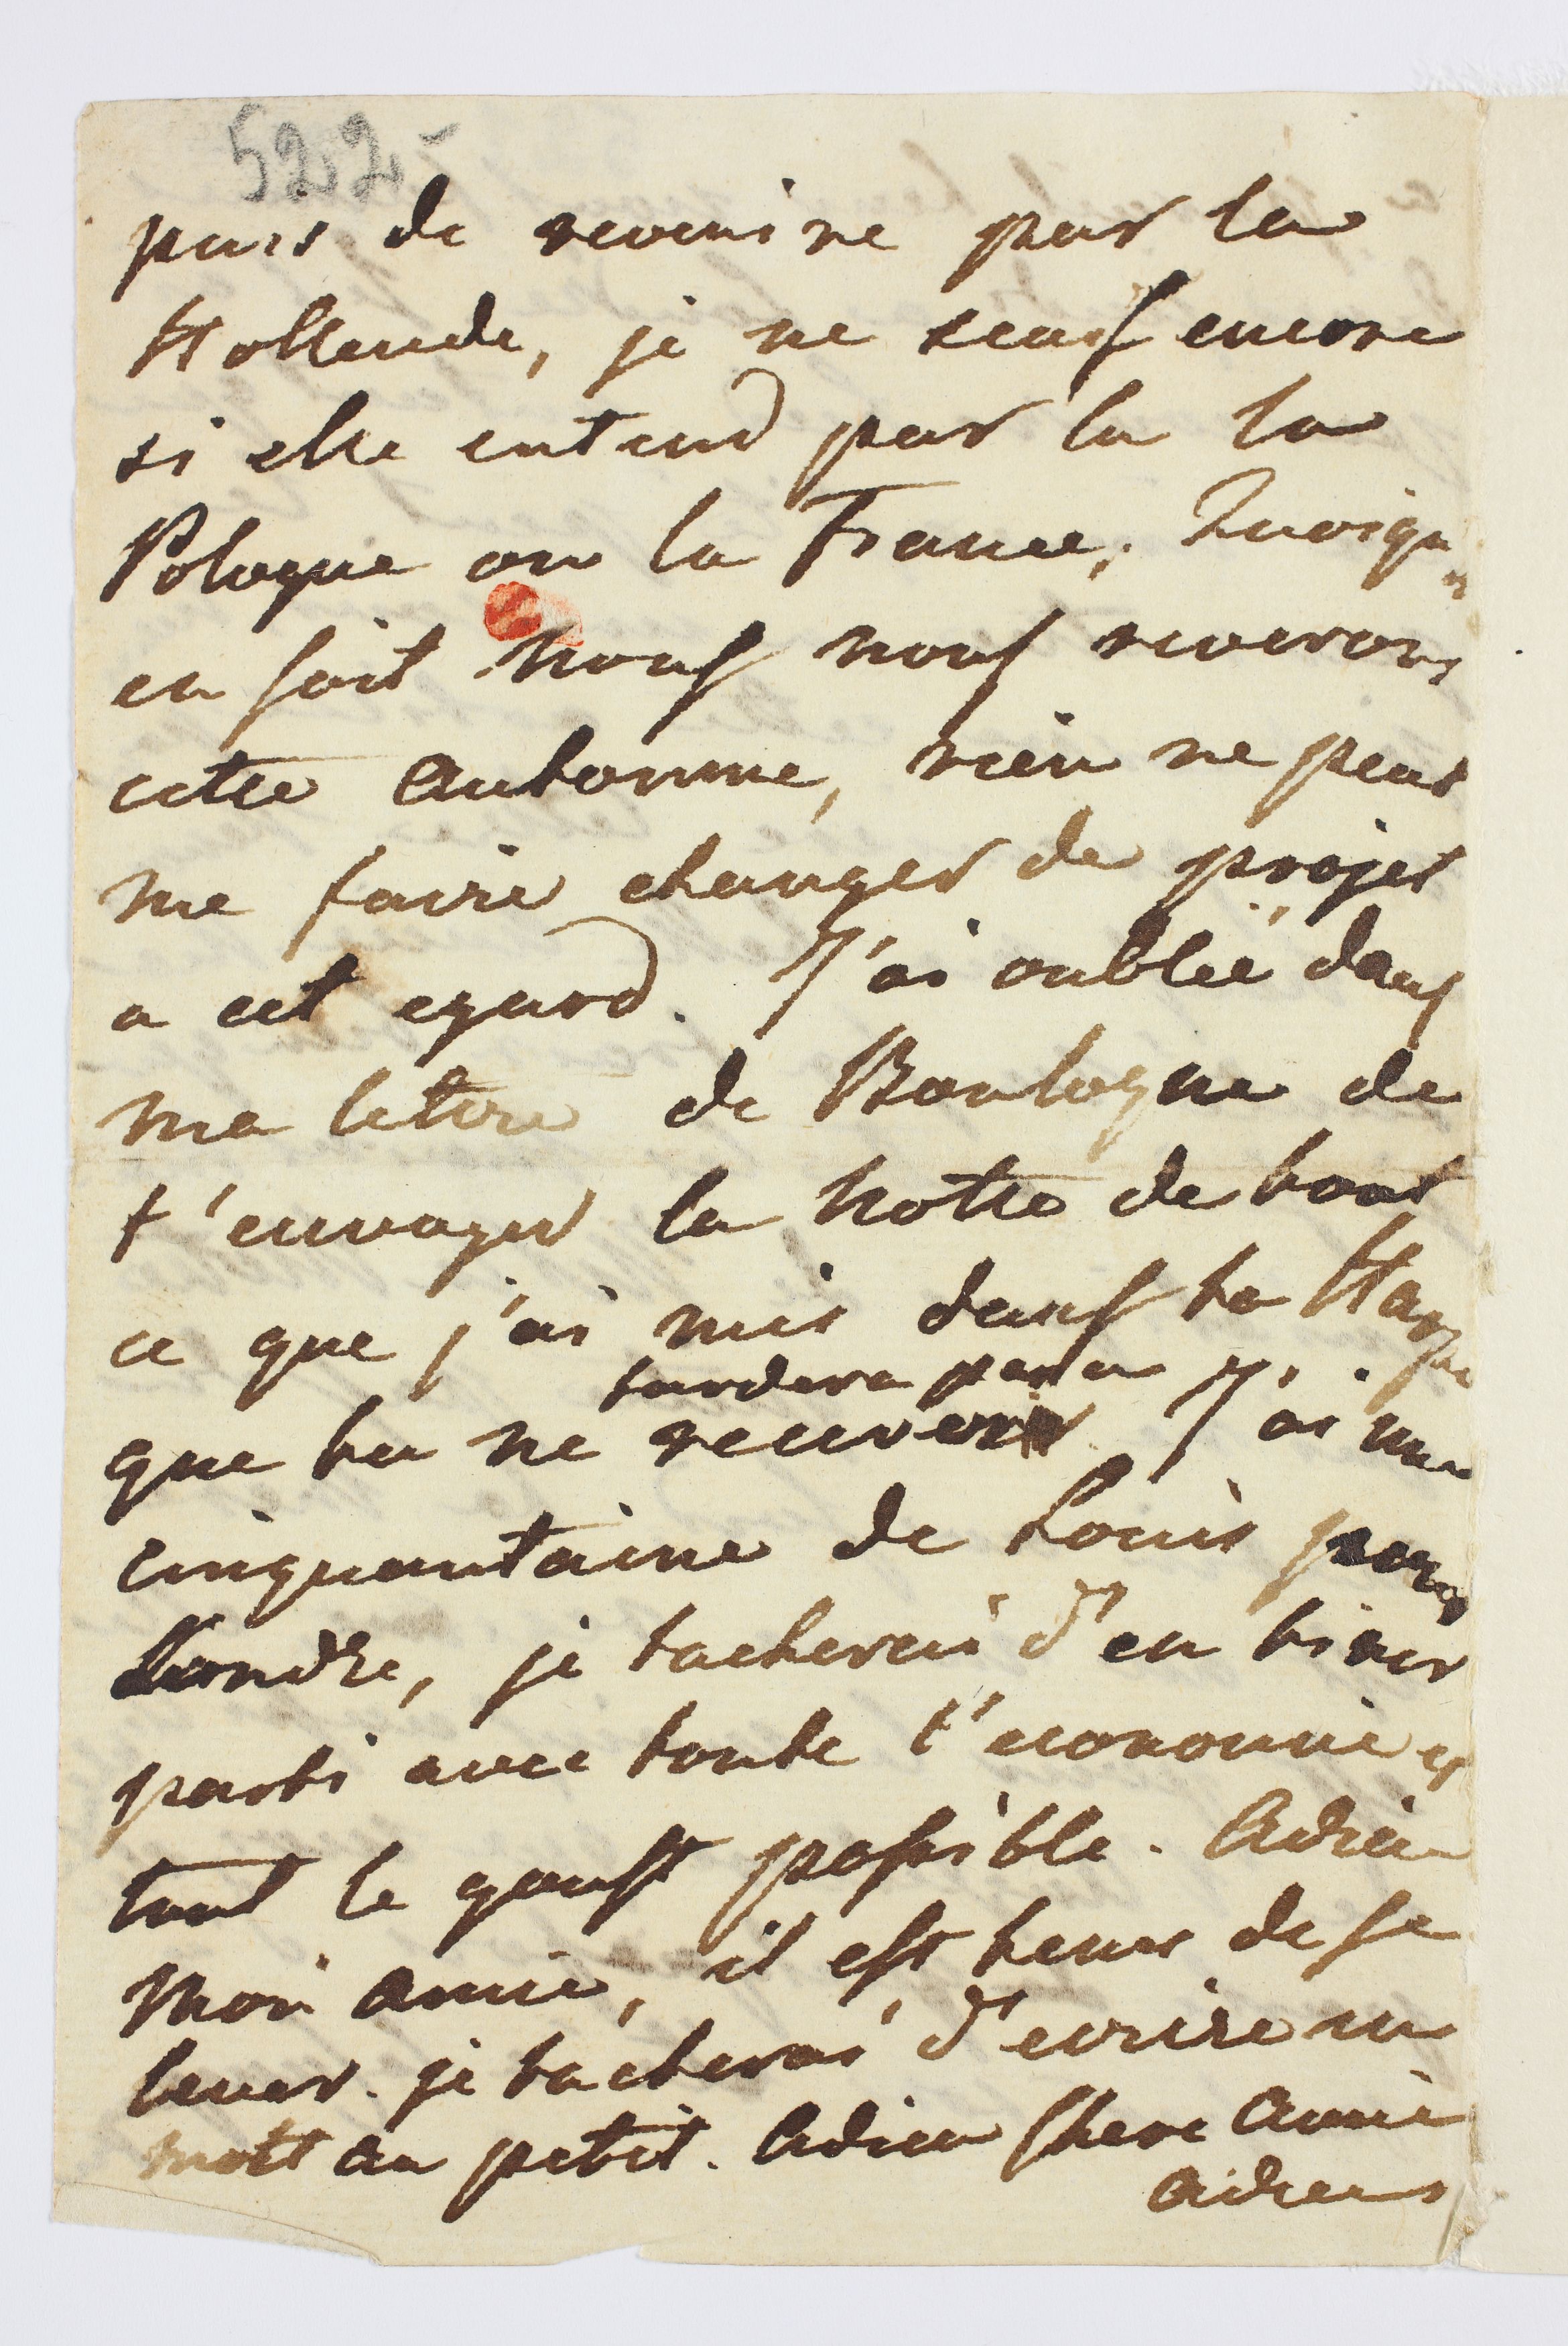 522
puis de revenire par la
Hollende, je ne scais encore
si elle entend par la la
Pologne ou la France, Quoiqu
en soit nous nous reverons
cette Automne, rien ne peut
me faire changer de projet
a cet egard. J'ai oublié dans
ma lettre de Boulogne de
t'envoyer la notte de tout
ce que j'ai mis dans ta
tardera pas a
que tu ne recevoir J'ai une
cinquantaine de Louis pour
Londre, je tacherai d'en tirer
parti avec toute l'economie et
tout le goust possible. Adieu
Mon amie, il est tems de se
lever. je tacherai d'ecrire un
mott au petit. Adieu Chere Amie
Adieu